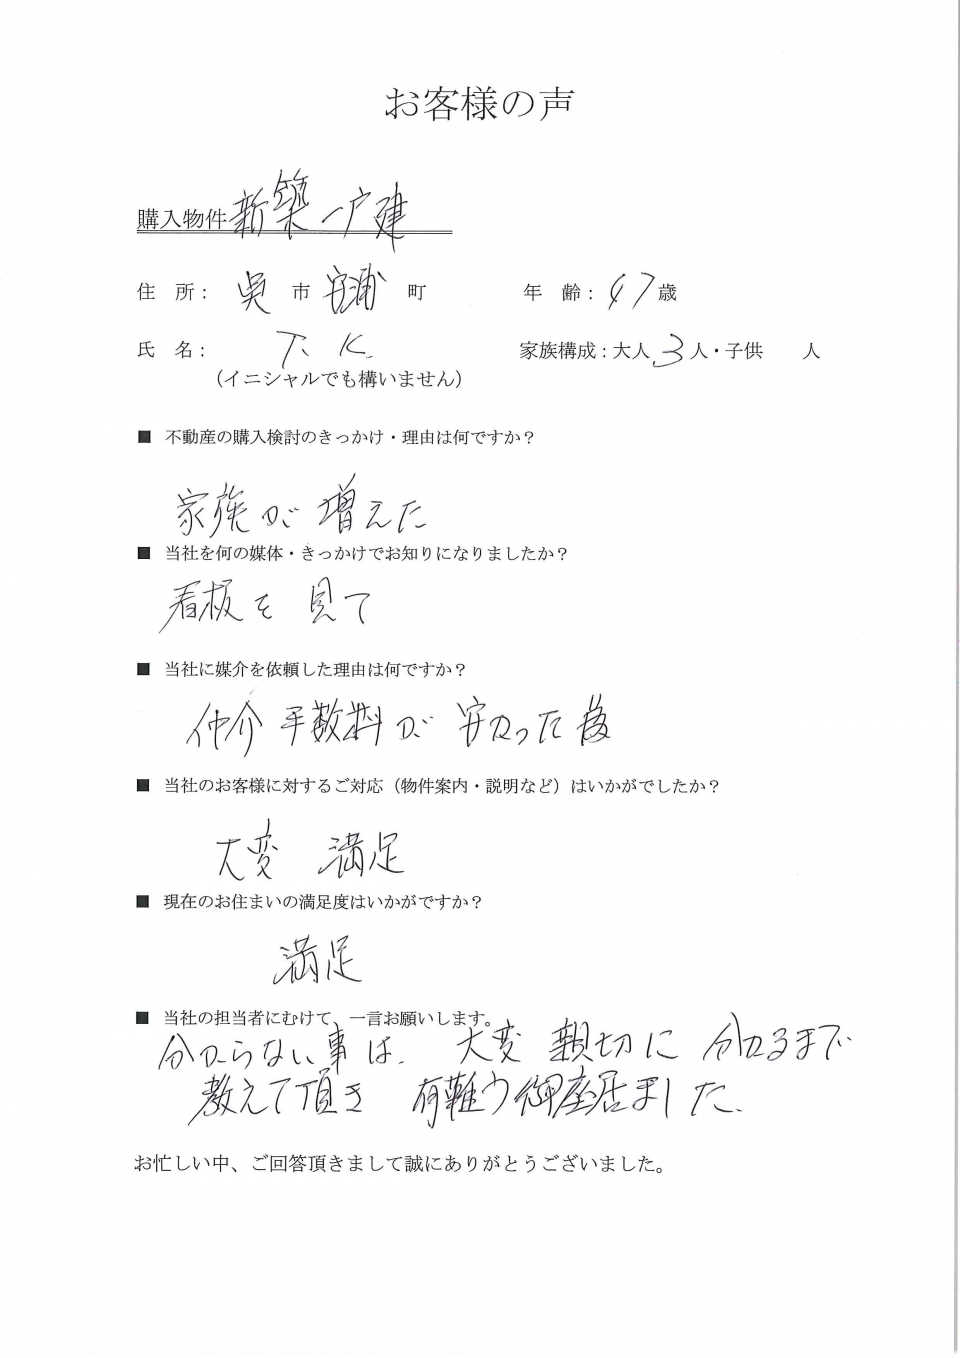 お客様の声
購入物件 新築一戸建
住 所： 呉 市 安浦 町 年 齢：47歳
氏 名： T. K. 家族構成：大人 3 人・子供 人
（イニシャルでも構いません）
■ 不動産の購入検討のきっかけ・理由は何ですか？
家族が増えた
■ 当社を何の媒体・きっかけでお知りになりましたか？
看板を見て
■ 当社に媒介を依頼した理由は何ですか？
仲介手数料が安かった為
■ 当社のお客様に対するご対応（物件案内・説明など）はいかがでしたか？
大変 満足
■ 現在のお住まいの満足度はいかがですか？
満足
■ 当社の担当者にむけて、一言お願いします。
分からない事は、大変親切に分かるまで
教えて頂き 有難う御座居ました。
お忙しい中、ご回答頂きまして誠にありがとうございました。